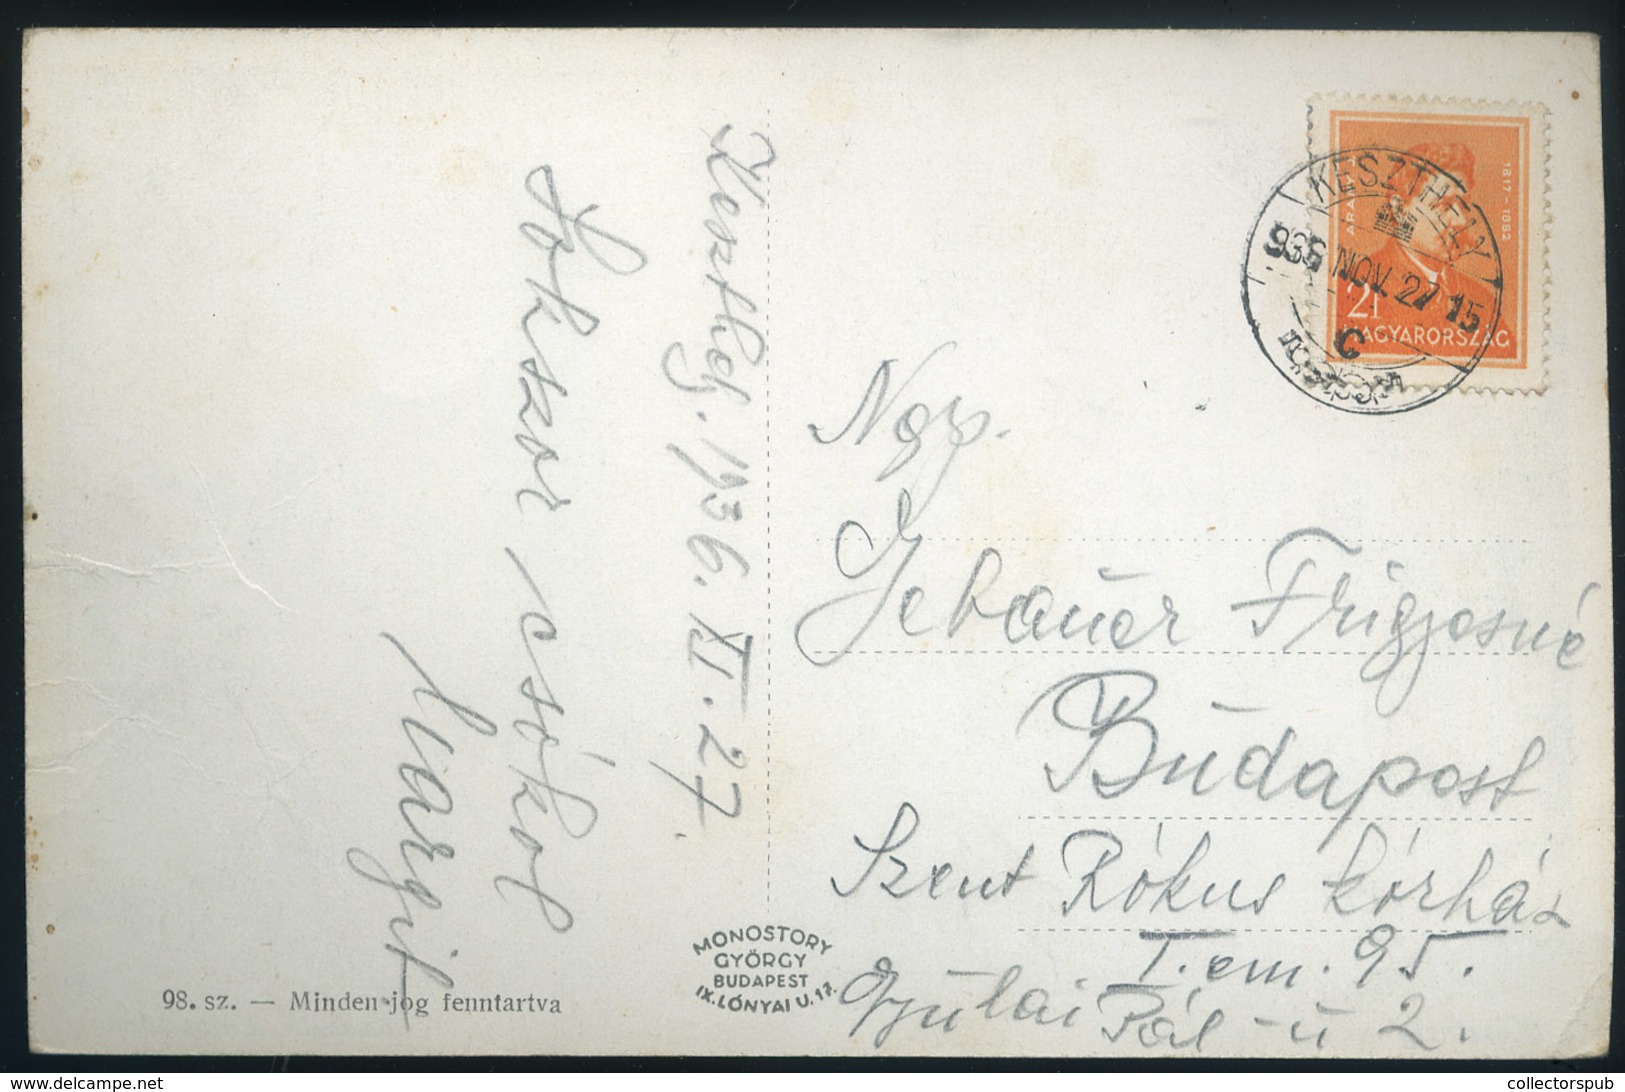 Keszthely. 1936. XI. 27.
Sokszor csókol
Margit
98. sz. — Minden jog fenntartva
MONOSTORY
GYÖRGY
BUDAPEST
IX. LÓNYAI U. 17.
ARANY J.
1817-1882
21
MAGYARORSZÁG
KESZTHELY
936 NOV. 27 15
C
Ngs.
Gebauer Frigyesné
Budapest
Szent Rókus kórház
I. em. 95.
Gyulai Pál-u 2.
collectorspub